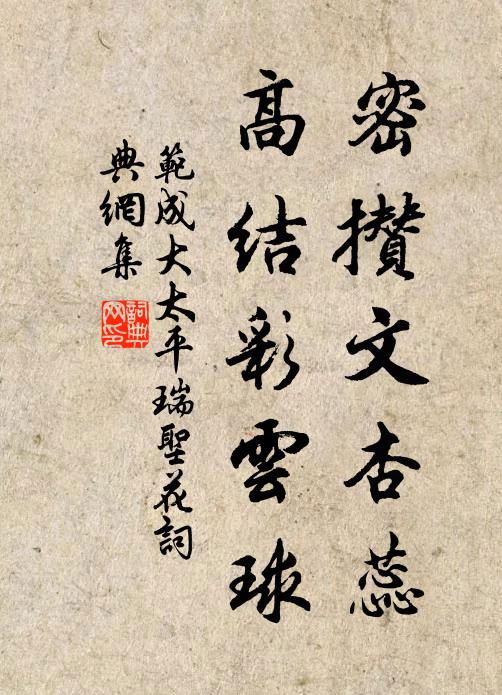 密攅文杏蕊
高結彩雲球
範成大太平瑞聖花詞
典網集
詞典網印